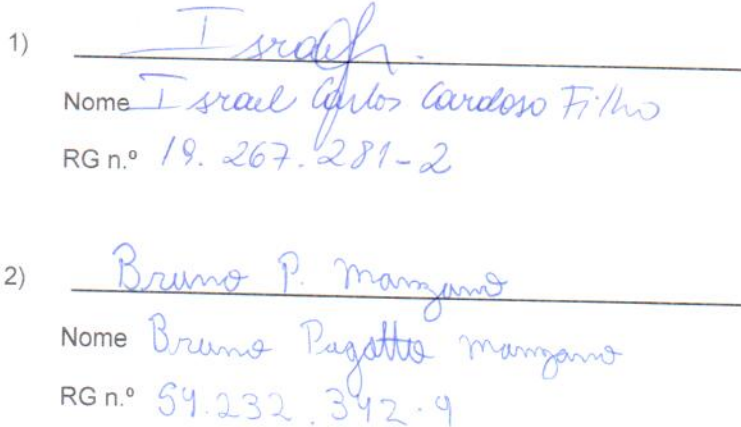 1) Israel
Nome Israel Carlos Cardoso Filho
RG n.º 19.267.281-2
2) Bruno P. Manzano
Nome Bruno Pagatto Manzano
RG n.º 54.232.342-9